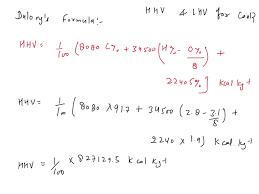 Dulong's Formula:-
HHV & LHV for Coal?
HHV = 1/100 (8080 C% + 34500 (H% - O%/8) +
2240 S%) Kcal kg⁻¹
HHV = 1/100 (8080 × 91.7 + 34500 (2.8 - 3.1/8) +
2240 × 1.9) K cal. kg⁻¹
HHV = 1/100 × 827129.5 K cal kg⁻¹